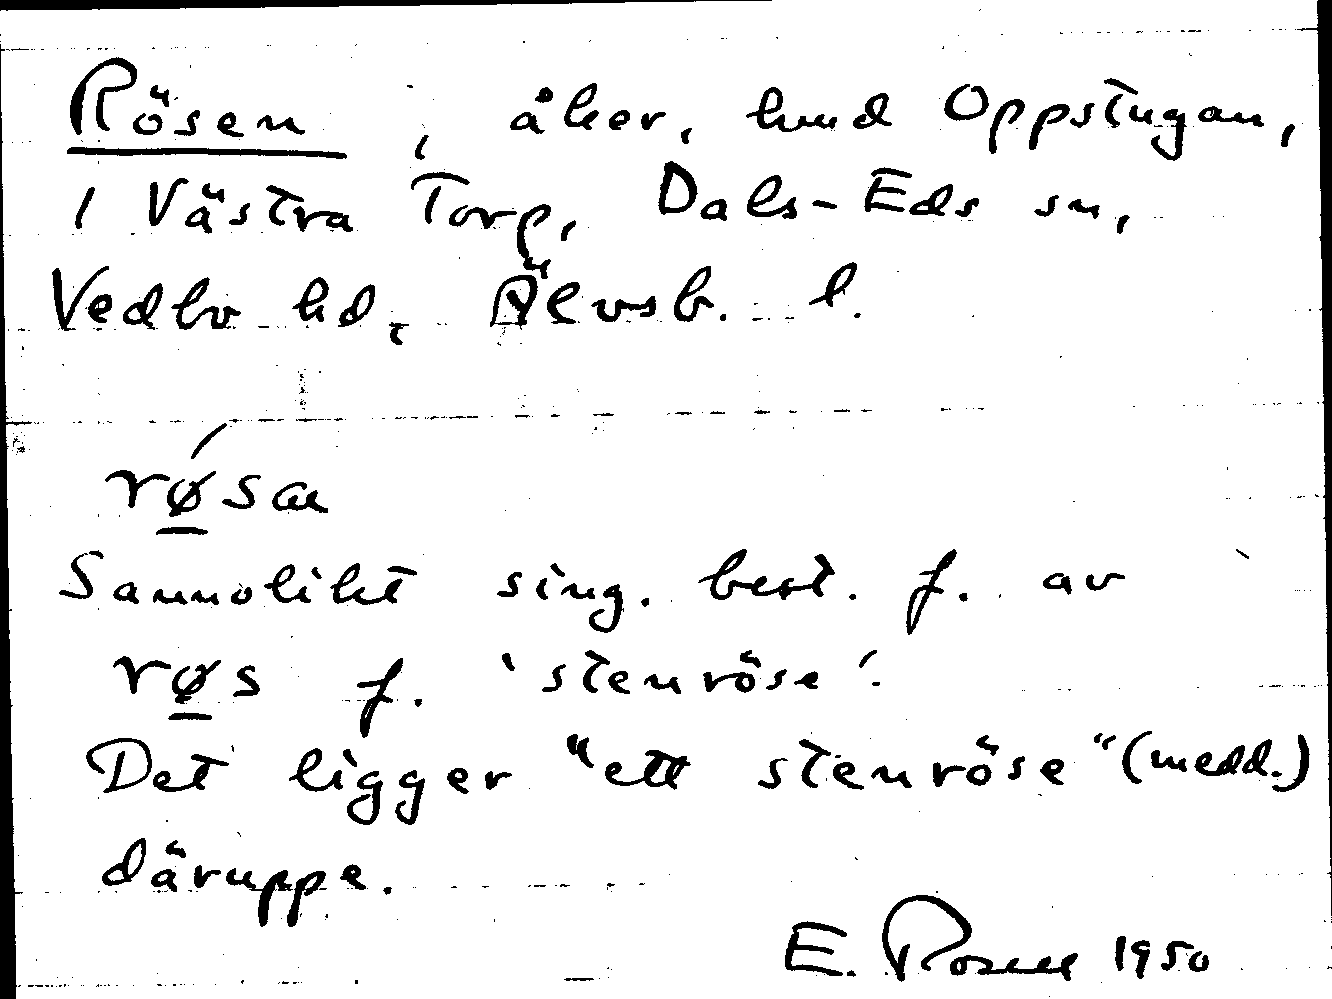 Rösen, åker, hmd Oppstugan,
1 Västra Torp, Dals-Eds sn,
Vedbo hd, Älvsb. l.
rǿ̱sæ
Sannolikt sing. best. f. av
rø̱s f. 'stenröse'.
Det ligger "ett stenröse" (medd.)
däruppe.
E. 1950